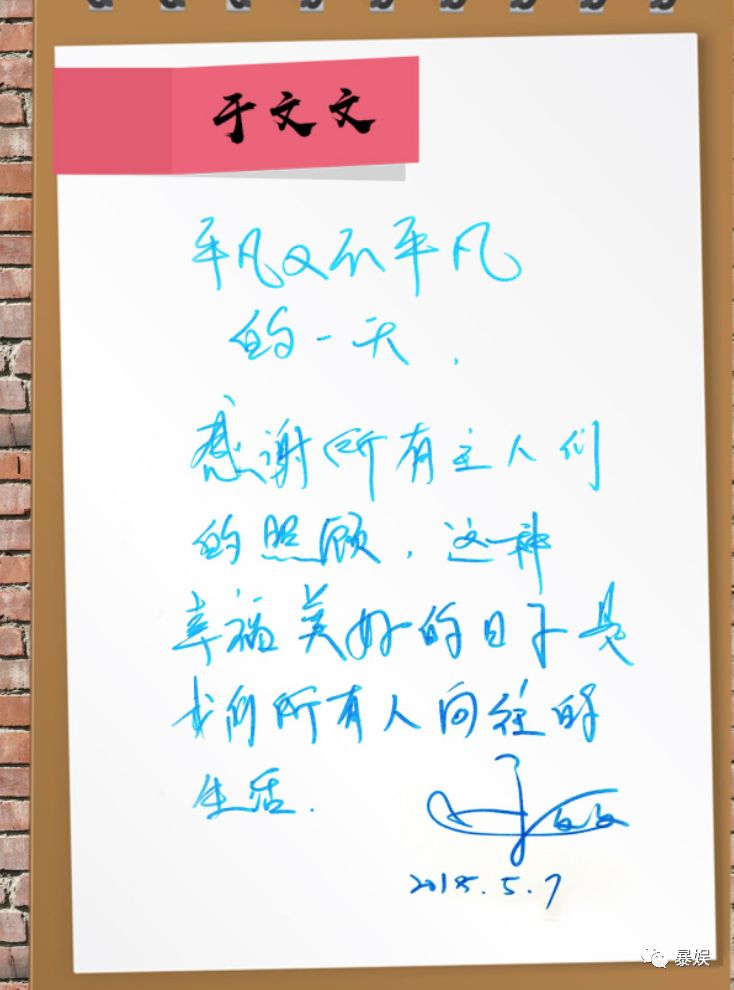 于文文
平凡又不平凡
的一天,
感谢所有主人们
的照顾,这种
幸福美好的日子是
我们所有人向往的
生活.
于文文
2018.5.7
暴娱